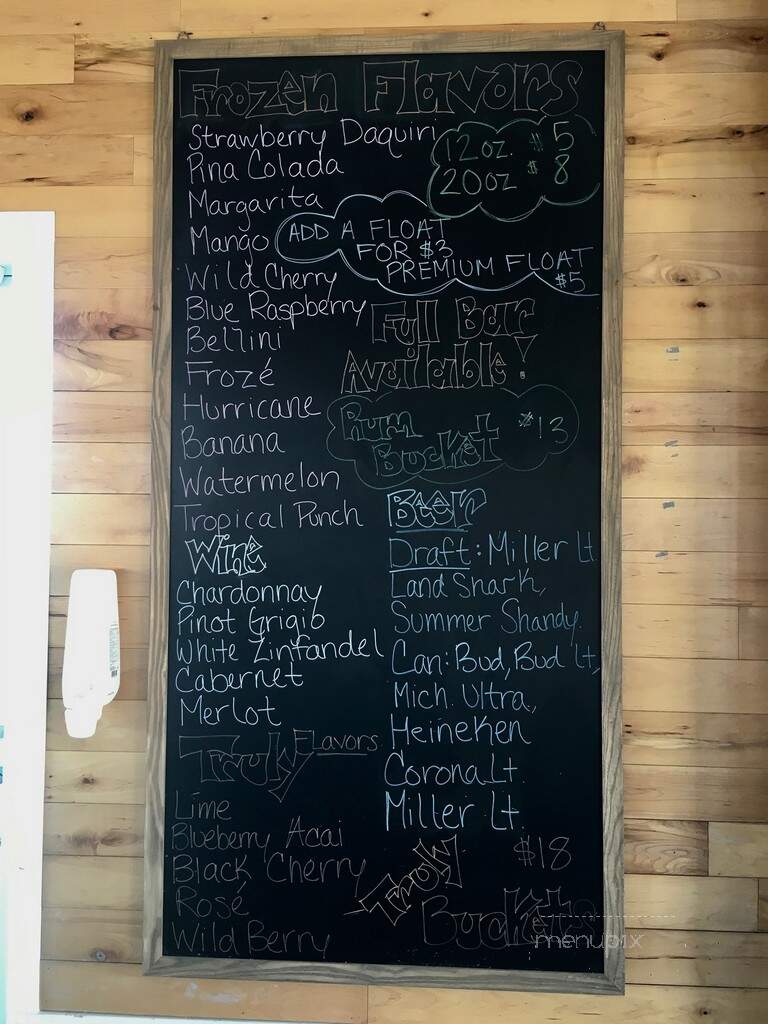 Frozen Flavors
Strawberry Daquiri
Pina Colada
Margarita
Mango
Wild Cherry
Blue Raspberry
Bellini
Frozé
Hurricane
Banana
Watermelon
Tropical Punch
12oz. $5
20oz $8
ADD A FLOAT
FOR $3
PREMIUM FLOAT
$5
Full Bar
Available!
Rum
Bucket $13
Wine
Chardonnay
Pinot Grigio
White Zinfandel
Cabernet
Merlot
Beer
Draft: Miller Lt
Land Shark,
Summer Shandy.
Can: Bud, Bud Lt,
Mich. Ultra,
Heineken
Corona Lt.
Miller Lt.
Truly Flavors
Lime
Blueberry Acai
Black Cherry
Rosé
Wild Berry
Truly $18
Buckets
menupix